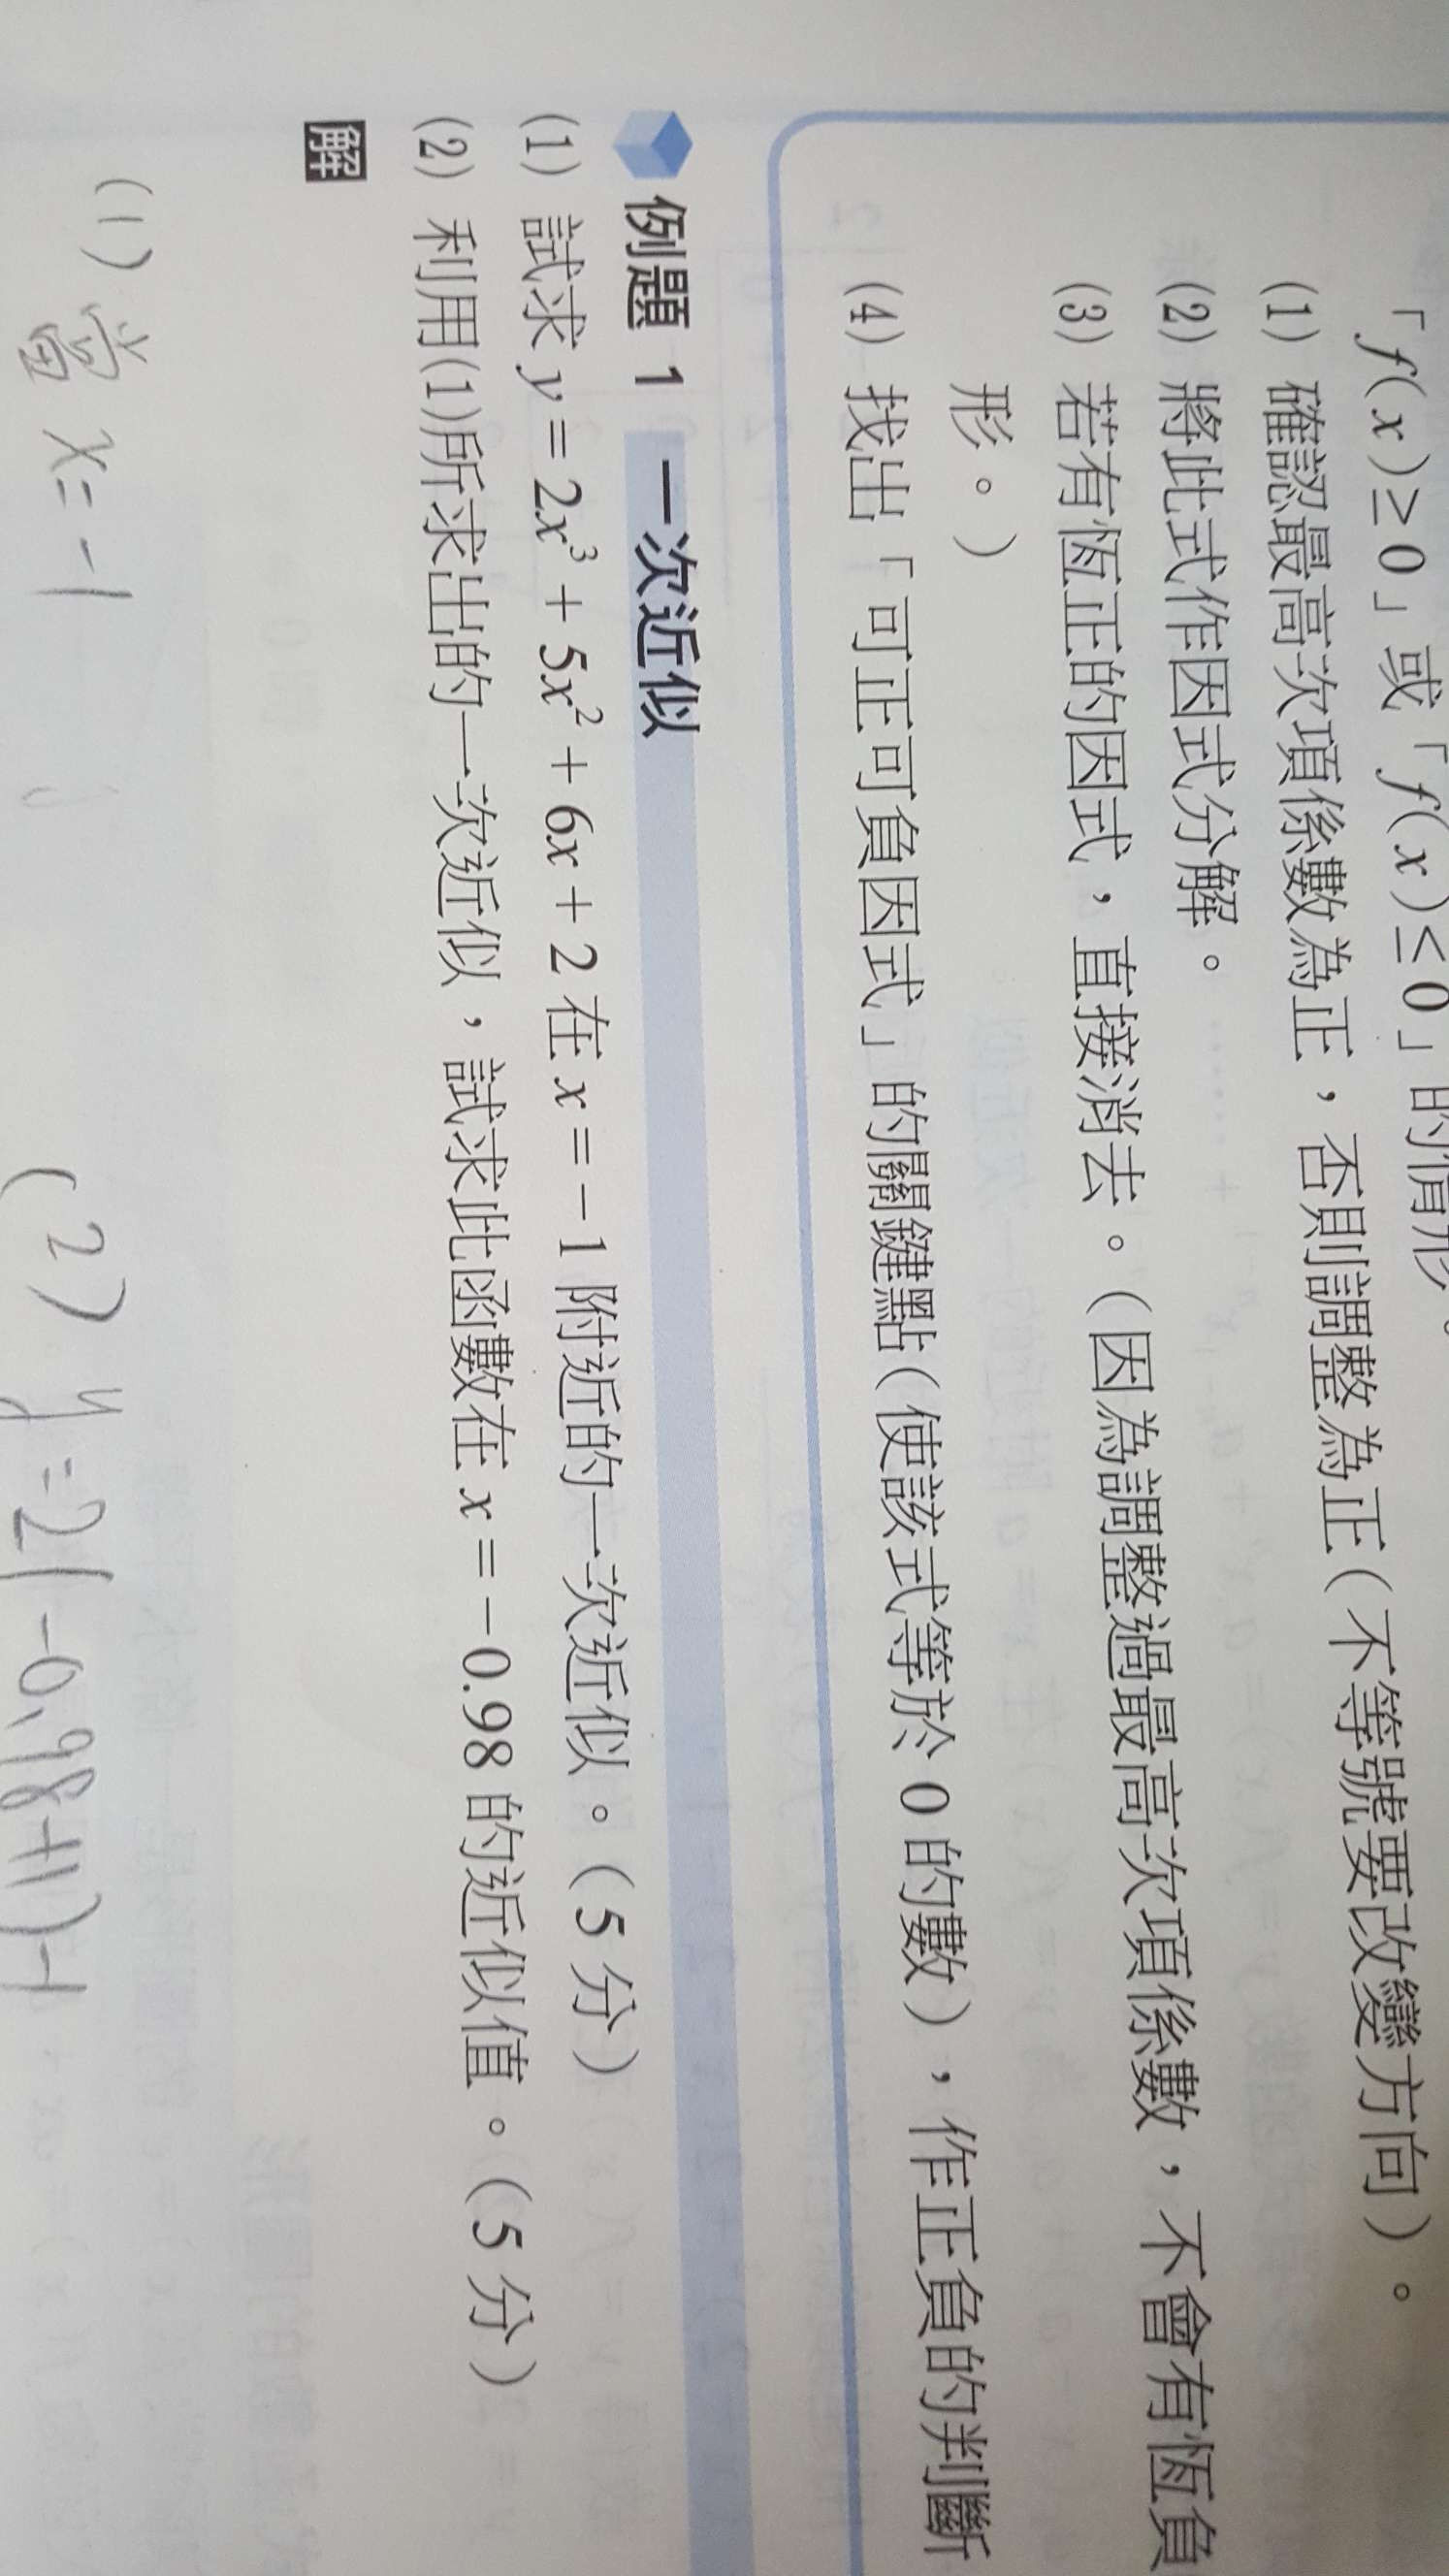 「f(x)≥0」或「f(x)≤0」的情形。
(1) 確認最高次項係數為正，否則調整為正(不等號要改變方向)。
(2) 將此式作因式分解。
(3) 若有恆正的因式，直接消去。(因為調整過最高次項係數，不會有恆負
形。)
(4) 找出「可正可負因式」的關鍵點(使該式等於 0 的數)，作正負的判斷
例題 1 一次近似
(1) 試求 y = 2x³ + 5x² + 6x + 2 在 x = −1 附近的一次近似。(5 分)
(2) 利用(1)所求出的一次近似，試求此函數在 x = −0.98 的近似值。(5 分)
解
(1) 當 x = -1
(2) y = 2(-0.98+1)-1